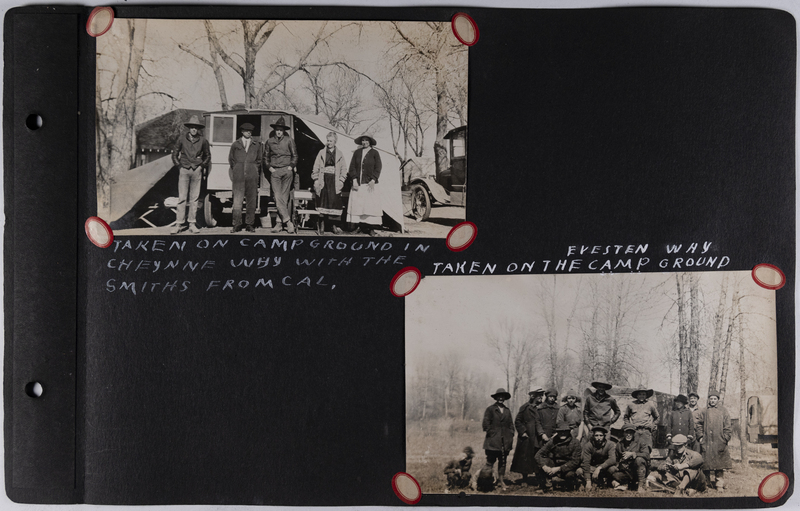 TAKEN ON CAMPGROUND IN
CHEYNNE WHY WITH THE
SMITHS FROM CAL.
EVESTEN WHY
TAKEN ON THE CAMP GROUND